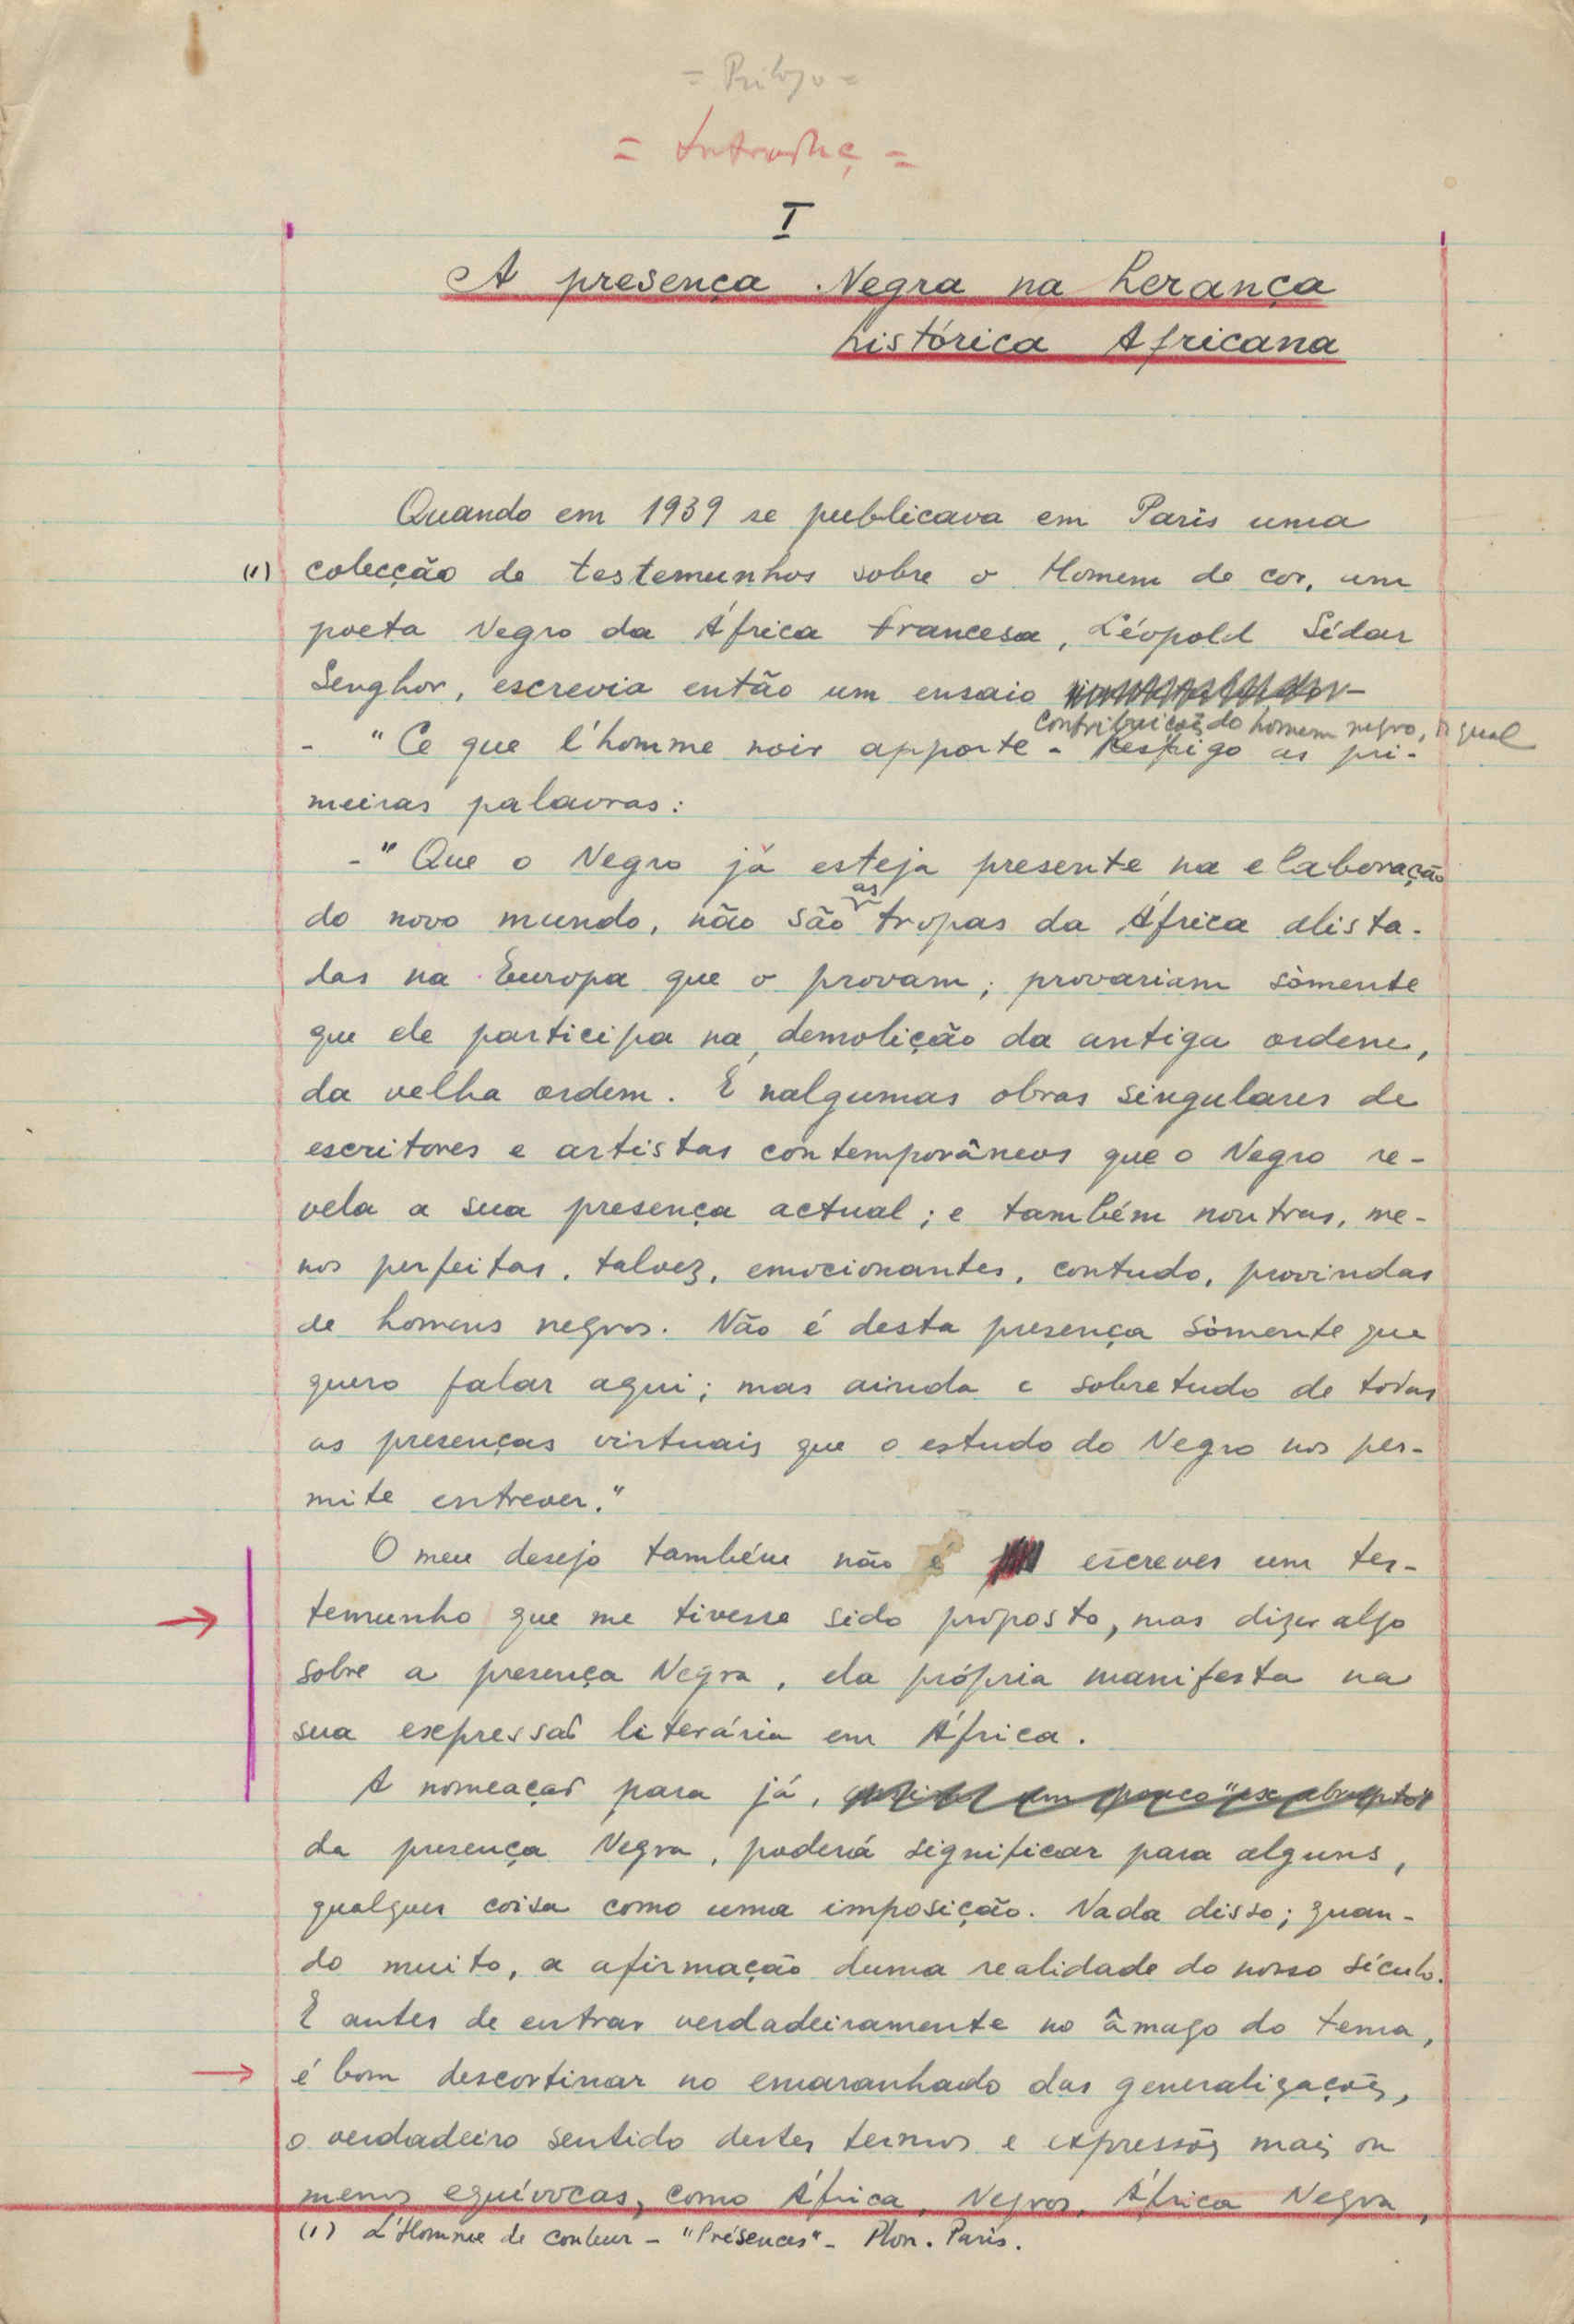 = Prólogo =
= Introduç =
I
A presença Negra na herança
histórica Africana
Quando em 1939 se publicava em Paris uma
(1) colecção de testemunhos sobre o Homem de cor, um
poeta Negro da África francesa, Léopold Sédar
Senghor, escrevia então um ensaio
contribuição do homem negro, o qual
- "Ce que l'homme noir apporte - Respigo as pri-
meiras palavras:
-"Que o Negro já esteja presente na elaboração
do novo mundo, não são as tropas da África alista-
das na Europa que o provam; provariam sòmente
que ele participa na demolição da antiga ordem,
da velha ordem. É nalgumas obras singulares de
escritores e artistas contemporâneos que o Negro re-
vela a sua presença actual; e também noutras, me-
nos perfeitas, talvez, emocionantes, contudo, provindas
de homens negros. Não é desta presença sòmente que
quero falar aqui; mas ainda e sobretudo de todas
as presenças virtuais que o estudo do Negro nos per-
mite entrever."
O meu desejo também não é escrever um tes-
temunho que me tivesse sido proposto, mas dizer algo
sobre a presença Negra, ela própria manifesta na
sua expressão literária em África.
A nomeação para já, um pouco "ex abrupto"
da presença Negra, poderá significar para alguns,
qualquer coisa como uma imposição. Nada disso; quan-
do muito, a afirmação duma realidade do nosso século.
E antes de entrar verdadeiramente no âmago do tema,
é bom descortinar no emaranhado das generalizações,
o verdadeiro sentido destes termos e expressões mais ou
menos equívocas, como África, Negros, África Negra,
(1) L'Homme de couleur - "Présences" - Plon. Paris.